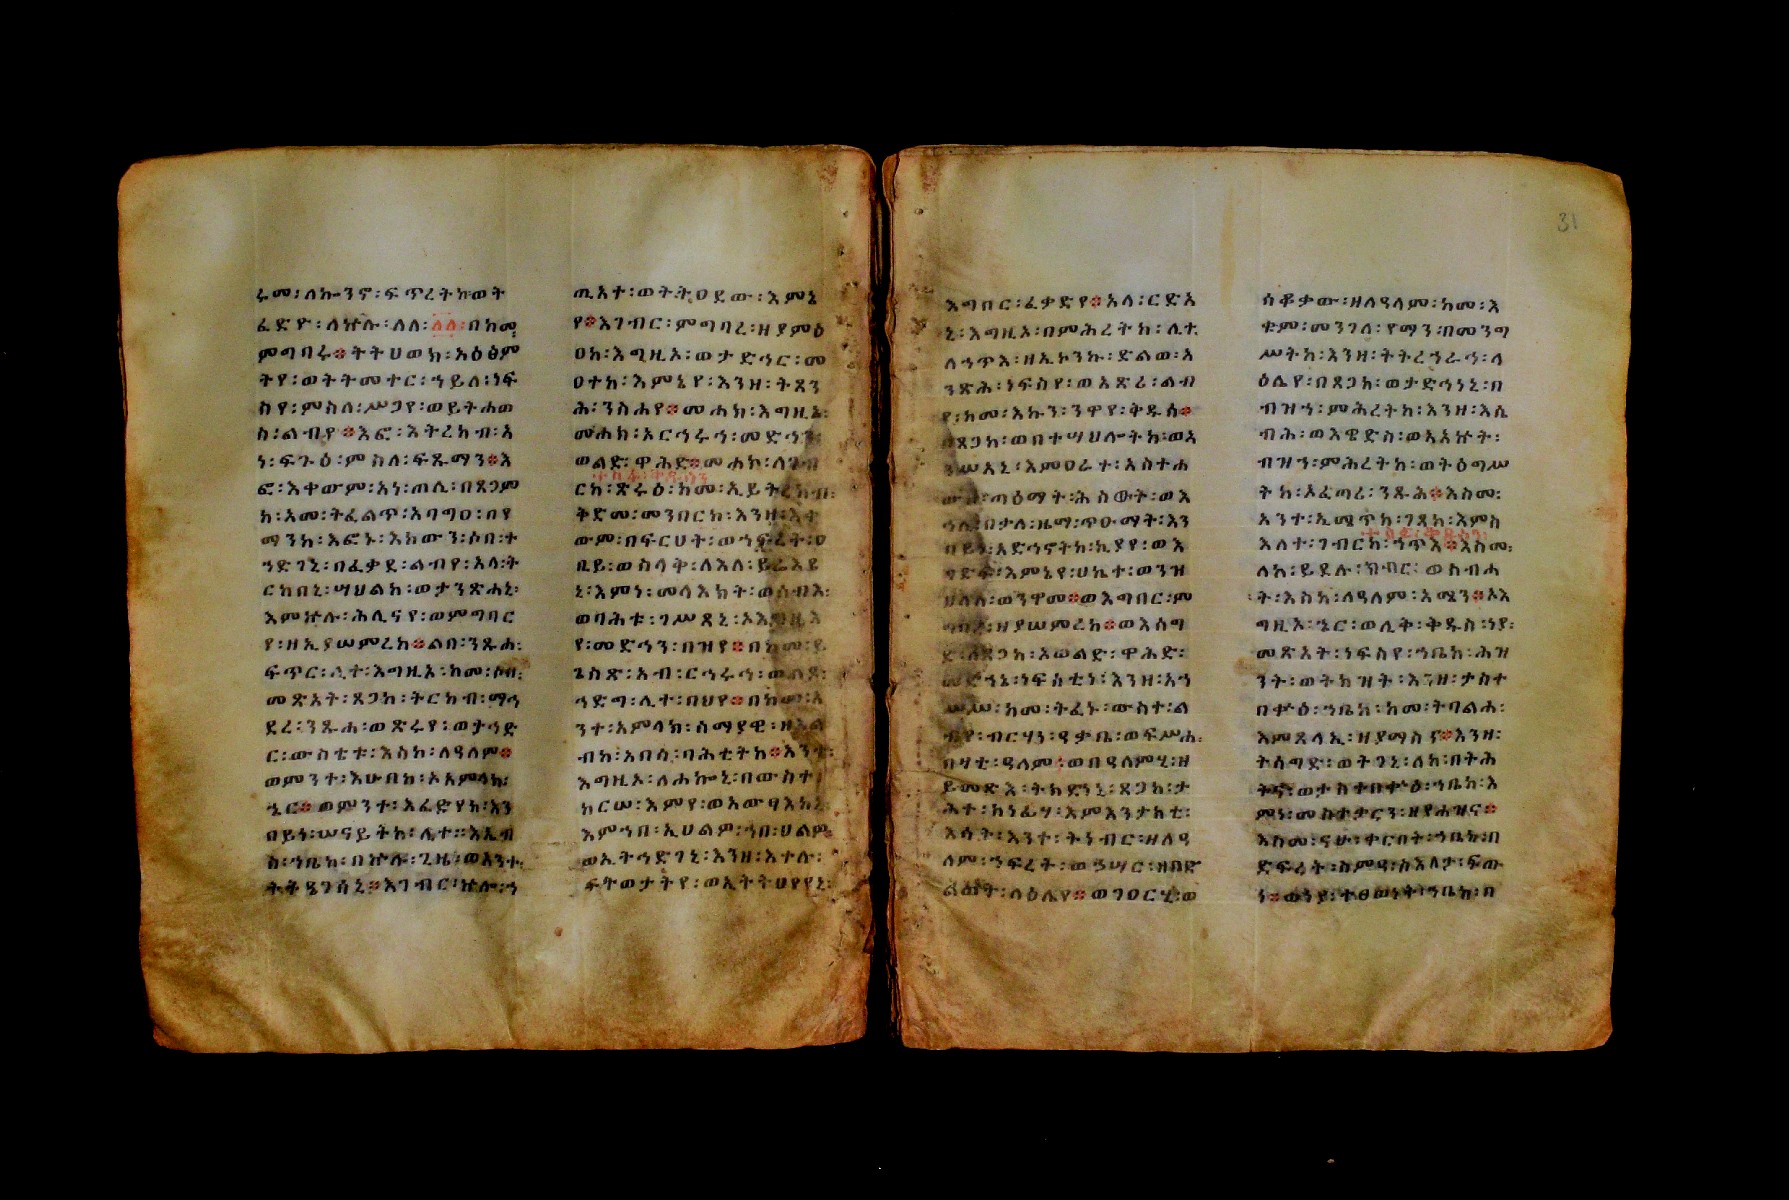 ሩመ፡ለኵንኖ፡ፍጥረትከ፡ወት
ፈድዮ፡ለኵሉ፡ለለ፡፩፩፡በከመ፡
ምግባሩ፨ትትሀወክ፡አዕፅም
ትየ፡ወትትመተር፡ኀይለ፡ነፍ
ስየ፡ምስለ፡ሥጋየ፡ወይትሐወ
ስ፡ልብየ፨እፎ፡እትረከብ፡አ
ነ፡ፍጉዕ፡ምስለ፡ፍጹማን፨እ
ፎ፡እቀውም፡አነ፡ጠሊ፡በጸጋም
ከ፡አመ፡ትፈልጥ፡አባግዐ፡በየ
ማንከ፡እፎኑ፡እከውን፡ሶበ፡ተ
ኀድገኒ፡በፈቃደ፡ልብየ፡አላ፡ት
ርከበኒ፡ሣህልከ፡ወታንጽሐኒ፡
እምኵሉ፡ሕሊናየ፡ወምግባር
የ፡ዘኢያሠምረከ፨ልበ፡ንጹሐ፡
ፍጥር፡ሊተ፡እግዚኦ፡ከመ፡ሶበ፡
መጽአት፡ጸጋከ፡ትርከብ፡ማኅ
ደረ፡ንጹሐ፡ወጽሩየ፡ወትኅድ
ር፡ውስቴቱ፡እስከ፡ለዓለም፨
ወምንተ፡እሁበከ፡ኦአምላክ፡
ኄር፨ወምንተ፡እፈድየከ፡እን
በይነ፡ሠናይትከ፡ሊተ።እኤብ
ስ፡ኀቤከ፡በኵሉ፡ጊዜ፡ወአንተ፡
ትትዔገሰኒ፨እገብር፡ኵሎ፡ኀ
ጢአተ፡ወትትዐደው፡እምኔ
የ፨እገብር፡ምግባረ፡ዘያምዕ
ዐከ፡እግዚኦ፡ወታድኅር፡መ
ዐተከ፡እምኔየ፡እንዘ፡ትጸን
ሕ፡ንስሐየ፨መሐክ፡እግዚኦ፡
መሐክ፡አርኅሩኅ፡መድኅን፡
ወልድ፡ዋሕድ፨መሐኮ፡ለገብ
ተከፉ፡ቀዱሳን
ርከ፡ጽሩዕ፡ከመ፡ኢይትረከብ፡
ቅድመ፡መንበርከ፡እንዘ፡እቀ
ውም፡በፍርሀት፡ወኀፍረት፡ዐ
ቢይ፡ወስላቅ፡ለእለ፡ይሬእዩ
ኒ፡እምነ፡መላእክት፡ወሰብእ፡
ወባሕቱ፡ገሥጸኒ፡ኦእግዚእ
የ፡መድኅን፡በዝየ፨በከመ፡ይ
ጌስጽ፡አብ፡ርኅሩኅ፡ወሰደ፡
ኅድግ፡ሊተ፡በህየ፨በከመ፡አ
ንተ፡አምላክ፡ሰማያዊ፡ዘአል
ብከ፡አበሳ፡ባሕቲትከ፨አንተ፡
እግዚኦ፡ለሐኰኒ፡በውስተ፡
ከርሠ፡እምየ፡ወአውፃእከኒ
እምኀበ፡ኢሀልዎ፡ኀበ፡ሀልዎ፡
ወኢትኅድገኒ፡እንዘ፡እተሉ፡
ፍትወታትየ፡ወኢትትሀየየኒ፡
እግበር፡ፈቃድየ፨አላ፡ርድአ
ኒ፡እግዚኦ፡በምሕረትከ፡ሊተ
ለኃጥእ፡ዘኢኮንኩ፡ድልወ፡አ
ንጽሕ፡ነፍስየ፡ወአጽሪ፡ልብ
የ፡ከመ፡እኩን፡ንዋየ፡ቅዱሰ፨
በጸጋከ፡ወበተሣህሎትከ፡ወአ
ንሥአኒ፡እምዐራተ፡አስተሐ
ውዞ፡ጣዕማት፡ሕስወት፡ወእ
ኀሊ፡በታለ፡ዜማ፡ጥዑማት፡እን
በይነ፡አድኅኖትከ፡ኪያየ፡ወእ
ግድፍ፡እምኔየ፡ሀኬተ፡ወንዝ
ህላለ፡ወንዋመ፨ወእግበር፡ም
ግባረ፡ዘያሠምረከ፨ወእሰግ
ድ፡ለጸጋከ፡አወልድ፡ዋሕድ፡
መድኀኔ፡ነፍስቲነ፡እንዘ፡አኀ
ሥሥ፡ከመ፡ትፈኑ፡ውስተ፡ል
ብየ፡ብርሃነ፡ዓቃቤ፡ወፍሥሐ፡
በዛቲ፡ዓለም፡ወበዓለምሂ፡ዘ
ይመጽእ፡ትክድነኒ፡ጸጋከ፡ታ
ሕተ፡ክነፊሃ፡እምእንታክቲ፡
እሳት፡እንተ፡ትነብር፡ዘለዓ
ለም፡ኀፍረት፡ወዓሣር፡ዘበድ
ልወት፡ለዕሌየ፨ወገዐርሂ፡ወ
ሰቆቃው፡ዘለዓለም፡ከመ፡እ
ቁም፡መንገለ፡የማን፡በመንግ
ሥትከ፡እንዘ፡ትትረኀራኅ፡ላ
ዕሌየ፡በጸጋከ፡ወታድኅነኒ፡በ
ብዝኀ፡ምሕረትከ፡እንዘ፡እሴ
ብሕ፡ወእዌድስ፡ወእአኵት፡
ብዝኀ፡ምሕረትከ፡ወትዕግሥ
ትከ፡ኦፈጣሪ፡ንጹሕ፨እስመ፡
አንተ፡ኢሜጥከ፡ገጸከ፡እምስ
ተከፉ፡ቀዱሳን፡
እለተ፡ገብርከ፡ኀጥእ፨እስመ፡
ለከ፡ይደሉ፡ክብር፡ወስብሐ
ት፡እስከ፡ለዓለም፡አሜን፨ኦእ
ግዚእ፡ኄር፡ወሊቅ፡ቅዱስ፡ነያ፡
መጽአት፡ነፍስየ፡ኀቤከ፡ሕዝ
ንት፡ወትክዝት፡እንዘ፡ታስተ
በቍዕ፡ኀቤከ፡ከመ፡ትባልሐ፡
እምጸላኢ፡ዘያማስና፨እንዘ፡
ትሰግድ፡ወትገኒ፡ለከ፡በትሕ
ትና፡ወታስተበቍዕ፡ኀቤከ፡እ
ምነ፡መስተቃርን፡ዘየሐዝና፨
እስመ፡ናሁ፡ቀርበት፡ኀቤከ፡በ
ድፍረት፡ስምዓ፡ስእለታ፡ፍጡ
ነ፨ወነያ፡ተፀወነት፡ኀቤከ፡በ
31